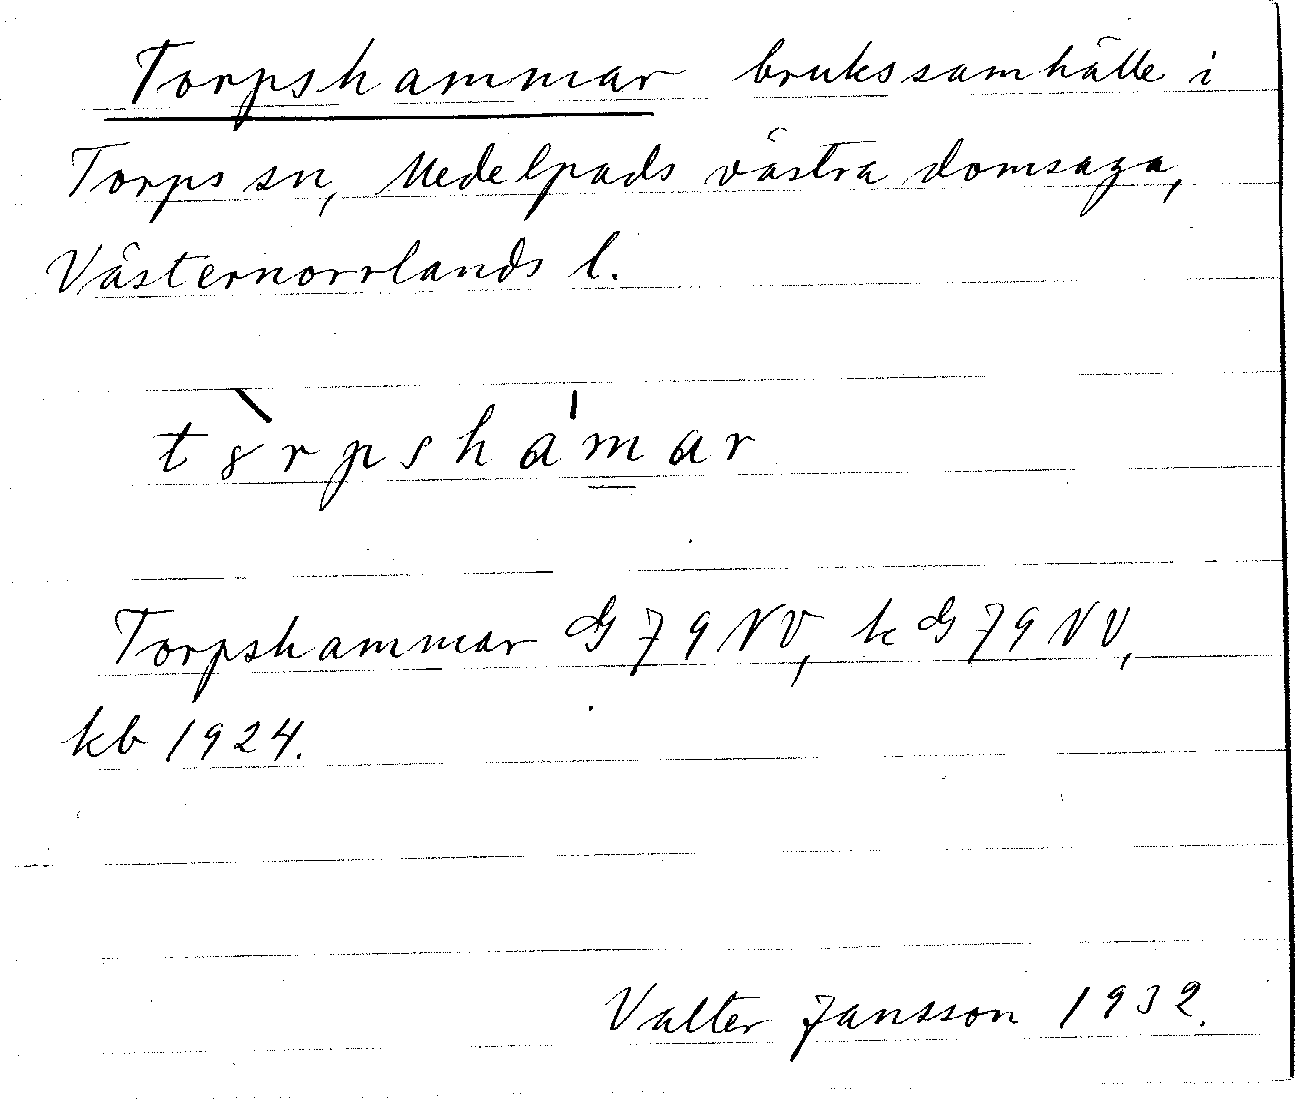 Torpshammar brukssamhälle i
Torps sn, Medelpads västra domsaga,
Västernorrlands l.
tȣ̀rpshám̲ar
Torpshammar G 79 NV, k G 79 NV,
kb 1924.
Valter Jansson 1932.